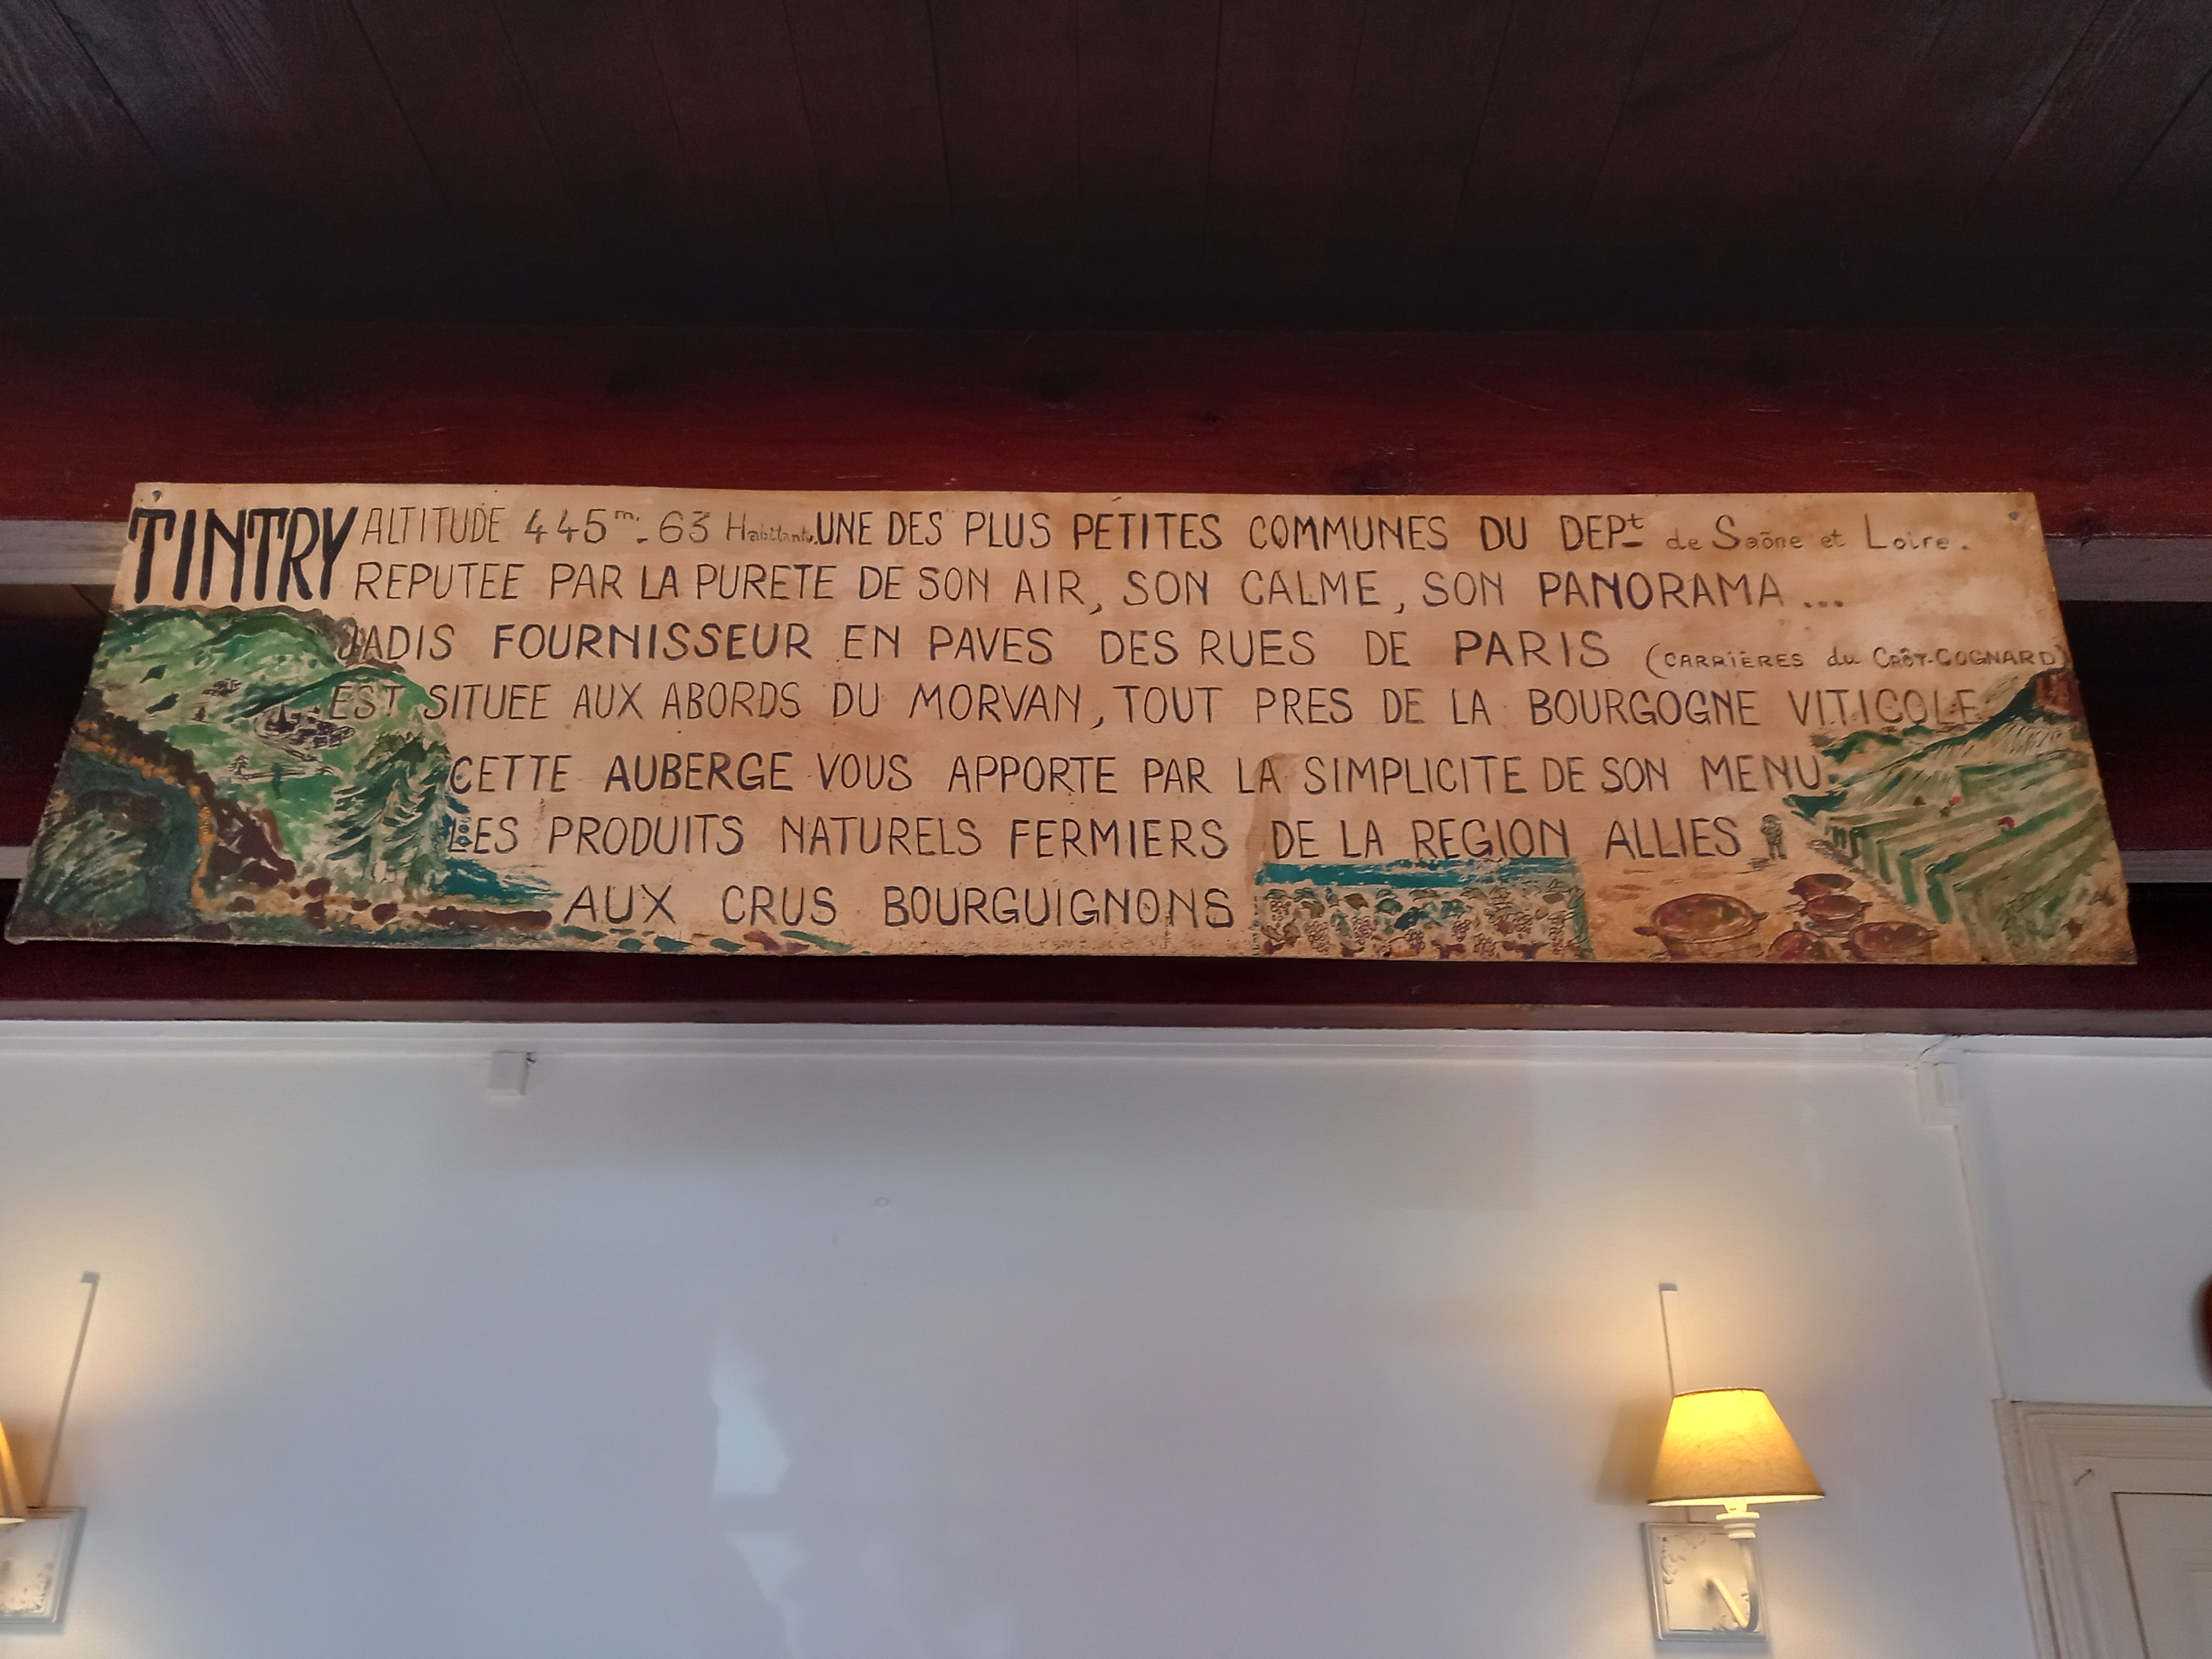 TINTRY ALTITUDE 445m. - 63 Habitants. UNE DES PLUS PETITES COMMUNES DU DEPt de Saône et Loire.
REPUTEE PAR LA PURETE DE SON AIR, SON CALME, SON PANORAMA...
JADIS FOURNISSEUR EN PAVES DES RUES DE PARIS (CARRIÈRES du CRÔT-COGNARD)
EST SITUEE AUX ABORDS DU MORVAN, TOUT PRES DE LA BOURGOGNE VITICOLE
CETTE AUBERGE VOUS APPORTE PAR LA SIMPLICITE DE SON MENU
LES PRODUITS NATURELS FERMIERS DE LA REGION ALLIES
AUX CRUS BOURGUIGNONS